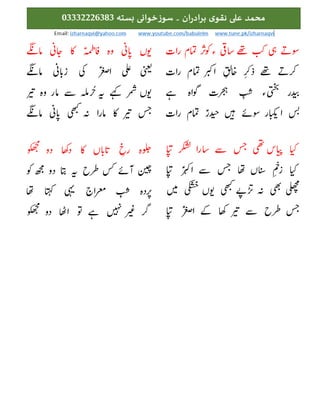 محمد علی نقوی برادران ۔ سوزخوانی بستہ 03332226383
Email: icharnaqvi@yahoo.com www.youtube.com/babulnlm www.tune.pk/icharnaqvi
سوتے ہی کب تھے ساقیء کوثر تمام رات
یوں پانی وہ فاطمہؑ کا جانی مانگے
کرتے تھے ذکرِ خالقِ اکبر تمام رات
یعنی علی اصغرؑ کی زبانی مانگے
بیدار بختیء شبِ ہجرت ہے گواہ
یوں شمر کہے یہ حُرملہ سے مار وہ تیر
بس ایکبار سوئے ہیں حیدرؑ تمام رات
جس تیر کا مارا نہ کبھی پانی مانگے
کیا پیاس تھی جس سے سارا لشکر تڑپا
جلوہ رخِ تاباں کا دکھا دو مجھکو
کیا زخمِ سناں تھا جس سے اکبرؑ تڑپا
چین آئے کس طرح یہ بتا دو مجھ کو
مچھلی بھی نہ تڑپے کبھی یوں خشکی میں
پردہ شبِ معراج یہی کہتا تھا
جس طرح سے تیر کھا کے اصغرؑ تڑپا
گر غیر نہیں ہے تو اٹھا دو مجھکو